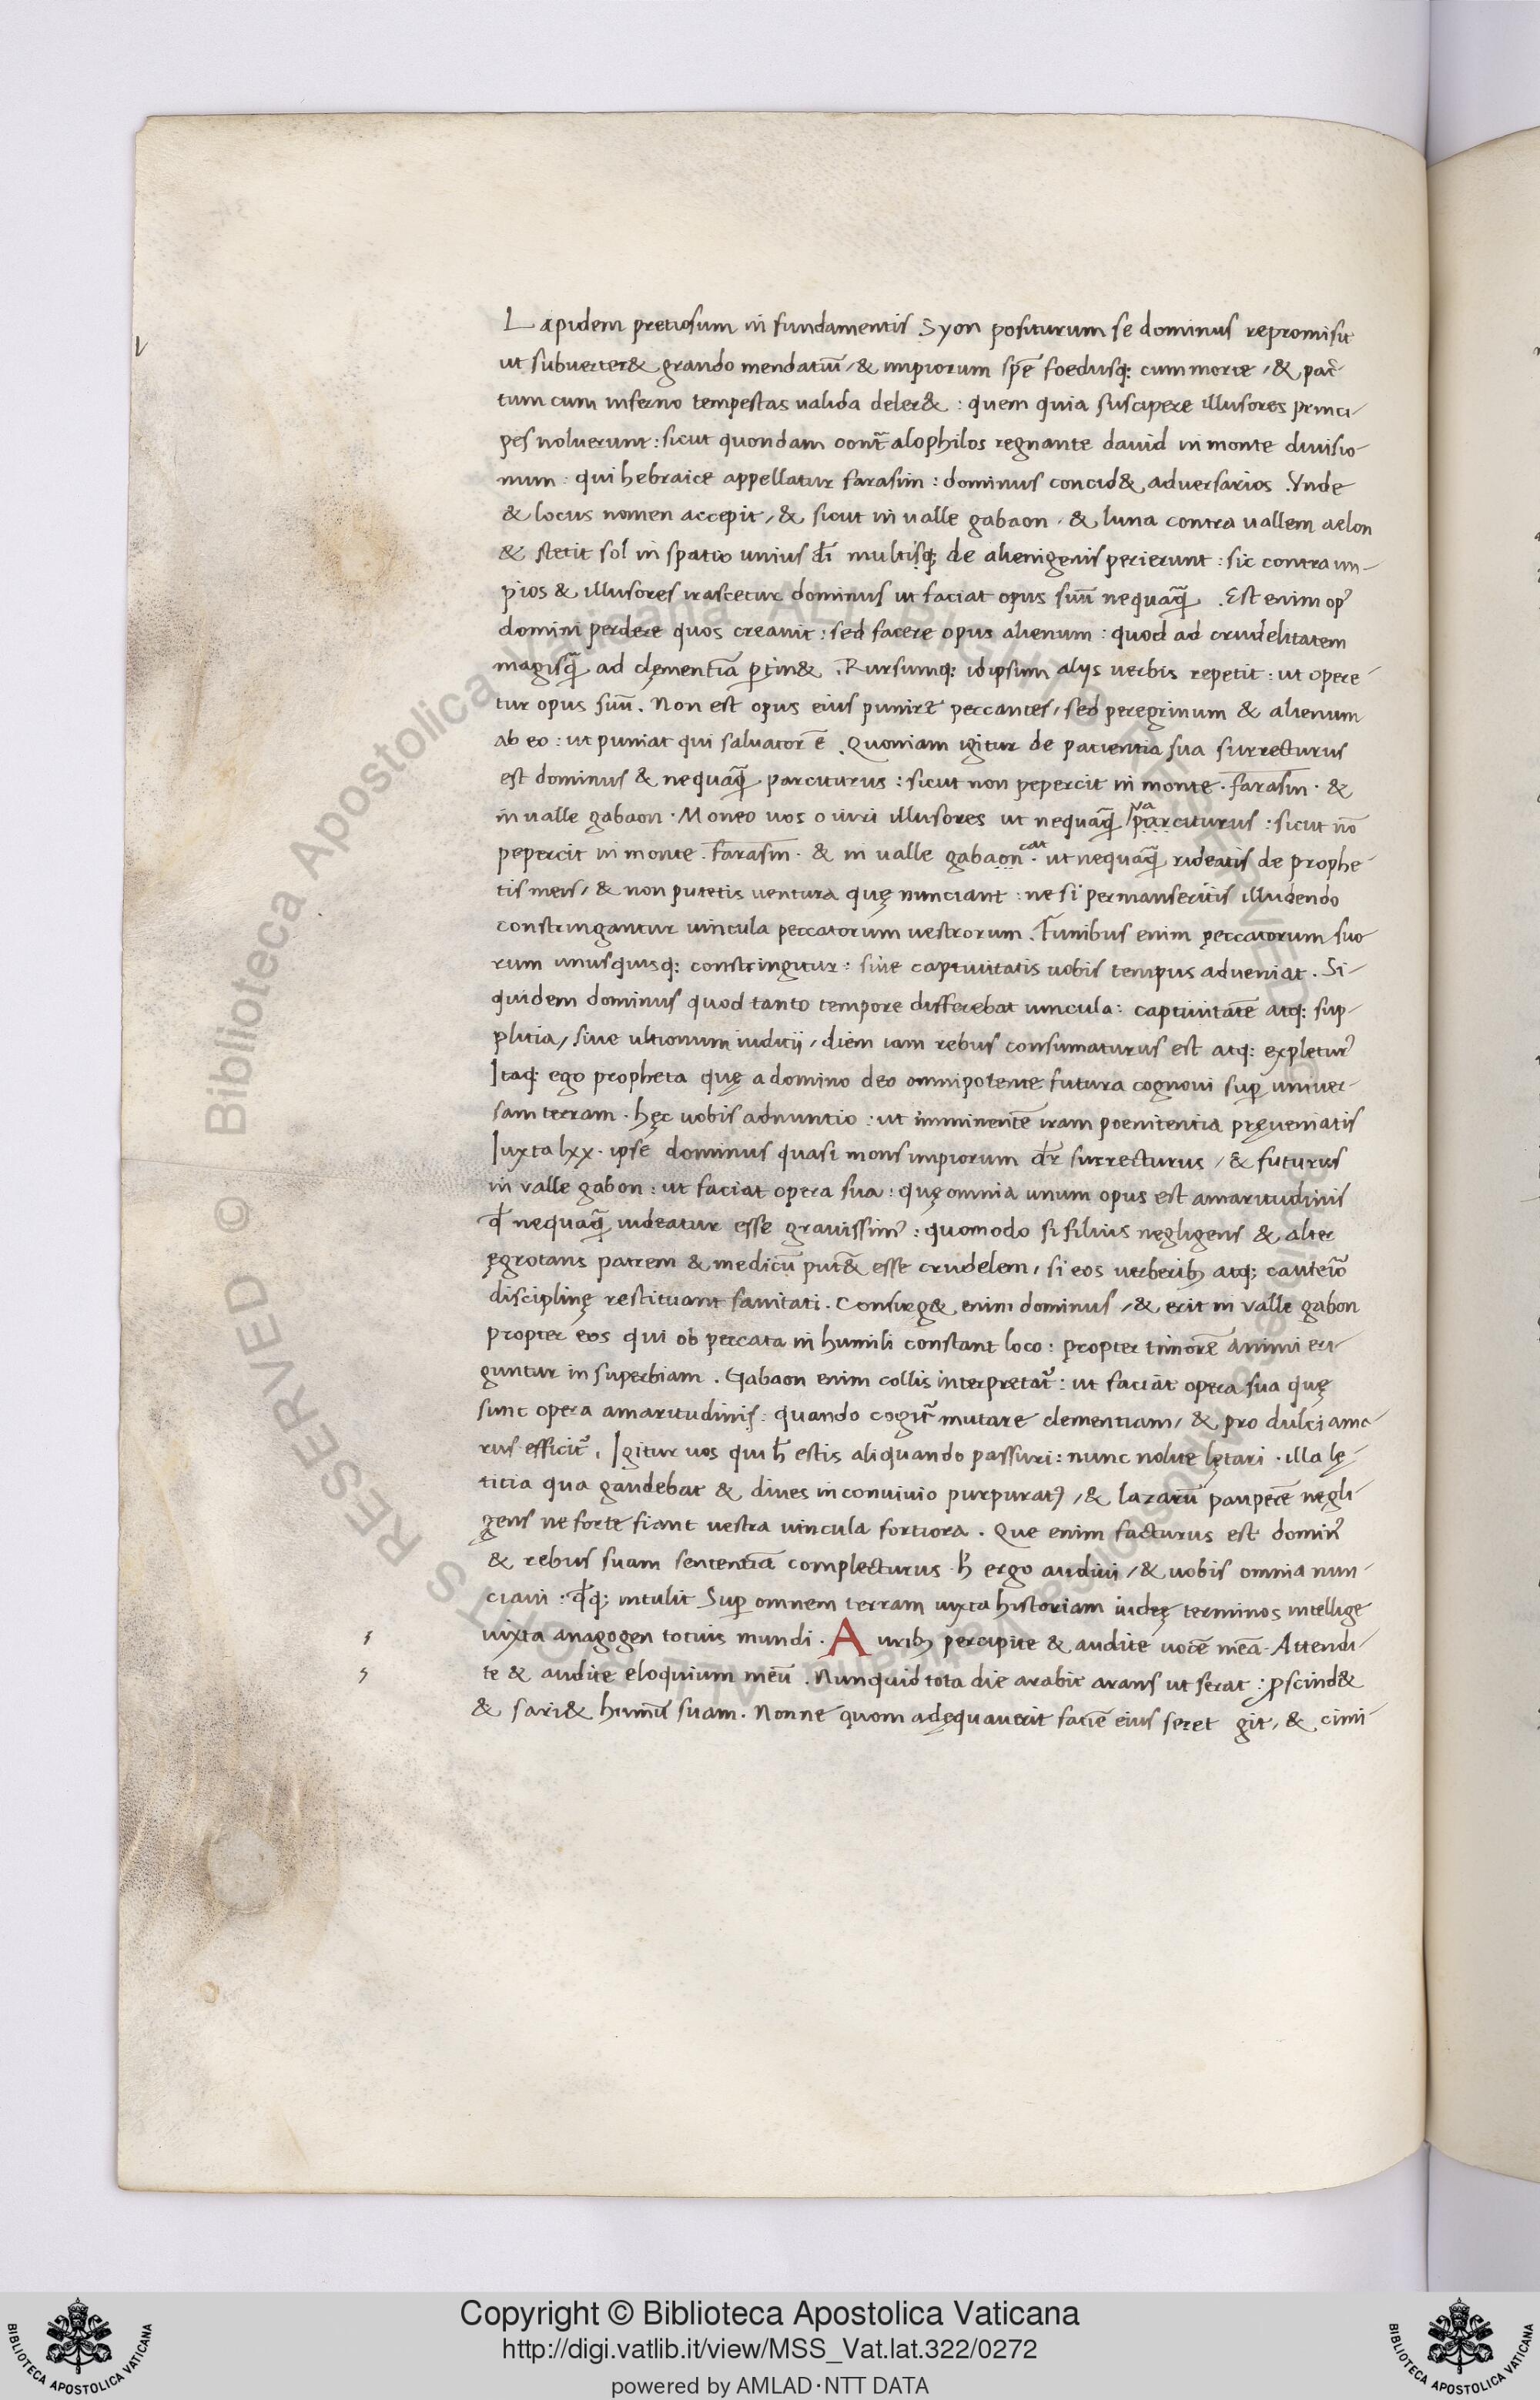 Lapidem pretiosum in fundamentis Syon positurum se dominus repromisit
ut subuerter& grando mendatiū / & impiorum spē foedusq: cum morte / & pac̄-
tum cum inferno tempestas ualida deler& : quem quia suscipere illusores princi-
pes noluerunt : sicut quondam contr̄ alophilos regnante dauid in monte diuisio-
num : qui hebraice appellatur farasim : dominus concid& aduersarios . Vnde
& locus nomen accepit / & sicut in ualle gabaon . & luna contra uallem aelon
& stetit sol in spatio unius d̄i multisq; de alienigenis perierunt : sic contra im-
pios & illusores irascetur dominus ut faciat opus suū nequaq̄ . Est enim op'
domini perdere quos creauit : sed facere opus alienum : quod ad crudelitatem
magisq̄ ad clęmentiā ꝑtin& . Rursumq: idipsum alijs uerbis repetit : ut opere-
tur opus suū . Non est opus eius punire peccantes / sed peregrinum & alienum
ab eo : ut puniat qui saluator ē . Quoniam igitur de patientia sua surrecturus
est dominus & nequaq̄ parciturus : sicut non pepercit in monte . farasin . &
in ualle gabaon . Moneo uos o uiri illusores ut nequaq̄ va parciturus : sicut nō
pepercit in monte . farasin . & in ualle gabaon . cat ut nequaq̄ rideatis de prophe-
tis meis / & non putetis uentura quę nunciant : ne si permanseritis illudendo
constringantur uincula peccatorum uestrorum . Funibus enim peccatorum suo
rum unusquisq: constringitur : siue captiuitatis uobis tempus adueniat . Si-
quidem dominus quod tanto tempore differebat uincula : captiuitatē atq: sup-
plitia / siue ultionum iuditij / diem iam rebus consumaturus est atq: expletur'
Itaq: ego propheta quę a domino deo omnipotente futura cognoui suꝑ uniuer-
sam terram . hęc uobis adnuntio : ut imminentē iram poenitentia pręueniatis
Iuxta lxx . ipse dominus quasi mons impiorum d̄r surrecturus / & futurus
in valle gabon : ut faciat opera sua : quę omnia unum opus est amaritudinis
q̄ nequaq̄ uideatur esse grauissim' : quomodo si filius negligens & alter
ęgrotans patrem & medicū put& esse crudelem / si eos uerberib; atq; cauteiō
disciplinę restituant sanitati . Consurg& enim dominus / & erit in valle gabon
propter eos qui ob peccata in humili constant loco : propter timorē animi eri-
guntur in superbiam . Gabaon enim collis interpretat' : ut faciat opera sua quę
sunt opera amaritudinis : quando cogit' mutare clementiam / & pro dulci ama-
rus efficit' . Igitur uos qui h̄ estis aliquando passuri : nunc nolite lętari . illa lę-
titia qua gaudebat & diues in conuiuio purpurat' / & lazarū pauperē negli-
gens ne forte fiant uestra uincula fortiora . Que enim facturus est domin'
& rebus suam sententiā complecturus . h̄ ergo audiui / & uobis omnia nun-
ciaui : q̄q; intulit Suꝑ omnem terram iuxta historiam iudeę terminos intellige
iuxta anagogen totius mundi . Aurib; percipite & audite uocē meā . Attendi-
te & audite eloquium meū . Nunquid tota die arabit arans ut serat : ꝓscind&
& sari& humū suam . Nonne quom adęquauerit faciē eius seret git / & cimi-
Copyright © Biblioteca Apostolica Vaticana
http://digi.vatlib.it/view/MSS_Vat.lat.322/0272
powered by AMLAD·NTT DATA